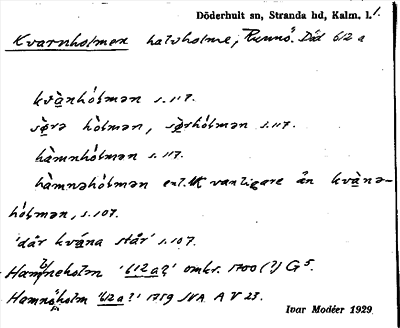 Döderhult sn, Stranda hd, Kalm. l.
Kvarnholmen halvholme, Runnö. Död 612 a
kvànhólmən s. 117.
sø̀rə hòlmən, sø̀rhólmən s. 117.
hàmnhólmən s. 117.
hàmnəhólmən enl. UK vanligare än kvànə-
hólmən, s. 107.
'där kvána står' s. 107.
Hamneholm '612 a?' omkr. 1700 (?) G 5.
Hamnöholm '612 a?' 1759 JVA A V 23.
Ivar Modéer 1929